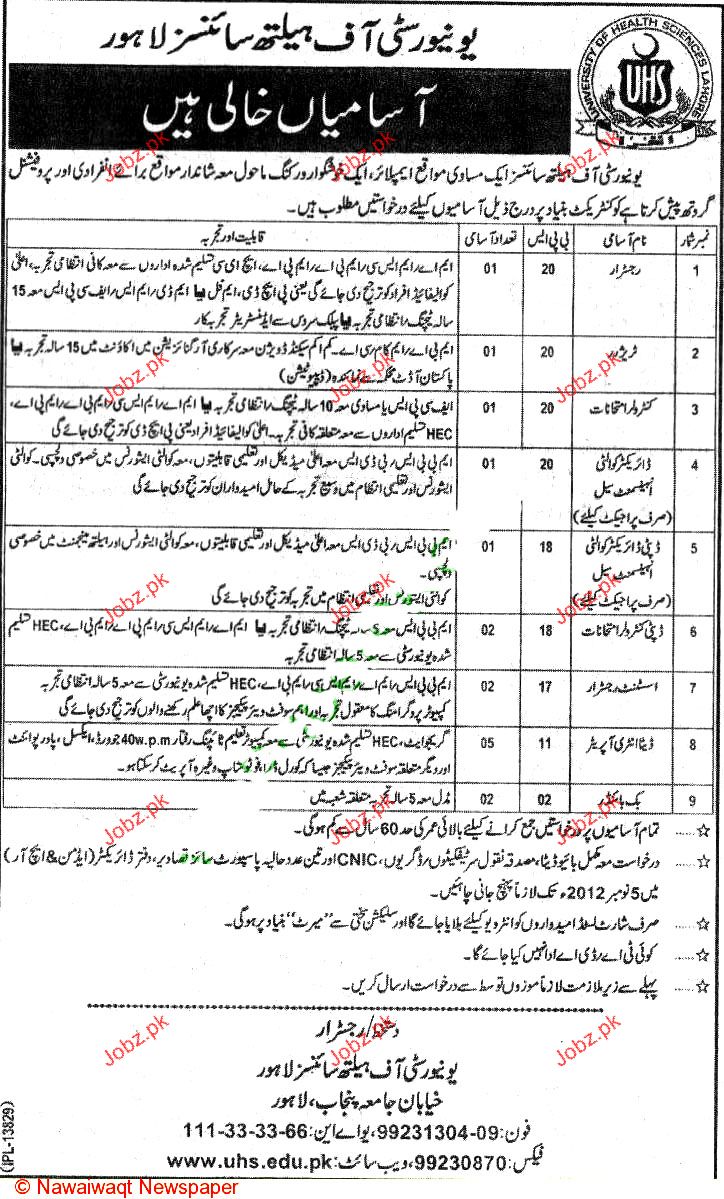 یونیورسٹی آف ہیلتھ سائنسز لاہور
UNIVERSITY OF HEALTH SCIENCES LAHORE
UHS
آسامیاں خالی ہیں
یونیورسٹی آف ہیلتھ سائنسز ایک مساوی مواقع ایمپلائر، ایک خوشگوار ورکنگ ماحول معہ شاندار مواقع برائے انفرادی اور پروفیشنل
گروتھ پیش کرتا ہے کو کنٹریکٹ بنیاد پر درج ذیل آسامیوں کیلئے درخواستیں مطلوب ہیں۔
نمبر شمار نام آسامی بی پی ایس تعداد آسامی قابلیت اور تجربہ
1 رجسٹرار 20 01 ایم اے/ایم ایس سی/ایم بی اے/ایم پی اے، ایچ ای سی تسلیم شدہ اداروں سے معہ کافی انتظامی تجربہ، اعلیٰ
کوالیفائیڈ افراد کو ترجیح دی جائے گی یعنی پی ایچ ڈی، ایم فل یا ایم ڈی/ایم ایس/ایف سی پی ایس معہ 15
سالہ ٹیچنگ/انتظامی تجربہ یا پبلک سروس سے ایڈمنسٹریٹر تجربہ کار
2 ٹریژرر 20 01 ایم بی اے/ایم کام/سی اے۔ کم از کم سیکنڈ ڈویژن معہ سرکاری آرگنائزیشن میں اکاؤنٹ میں 15 سالہ تجربہ یا
پاکستان آڈٹ محکمہ سے نمائندہ (ڈیپوٹیشن)
3 کنٹرولر امتحانات 20 01 ایف سی پی ایس یا مساوی معہ 10 سالہ ٹیچنگ/انتظامی تجربہ یا ایم اے/ایم ایس سی/ایم بی اے/ایم پی اے،
HEC تسلیم اداروں سے معہ متعلقہ کافی تجربہ۔ اعلیٰ کوالیفائیڈ افراد یعنی پی ایچ ڈی کو ترجیح دی جائے گی
4 ڈائریکٹر کوالٹی 20 01 ایم بی بی ایس/بی ڈی ایس معہ اعلیٰ میڈیکل اور تعلیمی قابلیتوں، معہ کوالٹی ایشورنس میں خصوصی دلچسپی۔ کوالٹی
انہینسمنٹ سیل ایشورنس اور تعلیمی انتظام میں وسیع تجربہ کے حامل امیدواران کو ترجیح دی جائے گی
(صرف پراجیکٹ کیلئے)
5 ڈپٹی ڈائریکٹر کوالٹی 18 01 ایم بی بی ایس/بی ڈی ایس معہ اعلیٰ میڈیکل اور تعلیمی قابلیتوں، معہ کوالٹی ایشورنس اور ہیلتھ مینجمنٹ میں خصوصی
انہینسمنٹ سیل دلچسپی۔
(صرف پراجیکٹ کیلئے) کوالٹی ایشورنس اور تعلیمی انتظام میں تجربہ کو ترجیح دی جائے گی
6 ڈپٹی کنٹرولر امتحانات 18 02 ایم بی بی ایس معہ 5 سالہ ٹیچنگ/انتظامی تجربہ یا ایم اے/ایم ایس سی/ایم بی اے/ایم پی اے، HEC تسلیم
شدہ یونیورسٹی سے معہ 5 سالہ انتظامی تجربہ
7 اسسٹنٹ رجسٹرار 17 02 ایم بی بی ایس/ایم اے/ایم ایس سی/ایم بی اے، HEC تسلیم شدہ یونیورسٹی سے معہ 5 سالہ انتظامی تجربہ
کمپیوٹر پروگرامنگ کا معقول تجربہ اور اہم سوفٹ ویئر پیکیجز کا اچھا علم رکھنے والوں کو ترجیح دی جائے گی
8 ڈیٹا انٹری آپریٹر 11 05 گریجوایٹ، HEC تسلیم شدہ یونیورسٹی سے معہ کمپیوٹر تعلیم ٹائپنگ رفتار 40w.p.m جو ورڈ، ایکسل، پاور پوائنٹ
اور دیگر متعلقہ سوفٹ ویئر پیکیجز جیسا کہ کورل ڈرا، فوٹو شاپ وغیرہ آپریٹ کر سکتا ہو۔
9 بک بائنڈر 02 02 مڈل معہ 5 سالہ تجربہ متعلقہ شعبہ میں
☆..... تمام آسامیوں پر درخواستیں جمع کرانے کیلئے بالائی عمر کی حد 60 سال سے کم ہو گی۔
☆..... درخواست معہ مکمل بائیو ڈیٹا، مصدقہ نقول سرٹیفکیٹوں/ڈگریوں، CNIC اور تین عدد حالیہ پاسپورٹ سائز تصاویر، دفتر ڈائریکٹر (ایڈمن & ایچ آر)
میں 5 نومبر 2012ء تک لازماً پہنچ جانی چاہئیں۔
☆..... صرف شارٹ لسٹڈ امیدواروں کو انٹرویو کیلئے بلایا جائے گا اور سلیکشن سختی سے ”میرٹ“ بنیاد پر ہو گی۔
☆..... کوئی ٹی اے/ڈی اے ادا نہیں کیا جائے گا۔
☆..... پہلے سے زیر ملازمت لازماً موزوں توسط سے درخواست ارسال کریں۔
دستخط/رجسٹرار
یونیورسٹی آف ہیلتھ سائنسز لاہور
خیابان جامعہ پنجاب، لاہور
فون: 09-99231304، یو اے این: 111-33-33-66
فیکس: 99230870، ویب سائٹ: www.uhs.edu.pk
(IPL-13829)
© Nawaiwaqt Newspaper
Jobz.pk